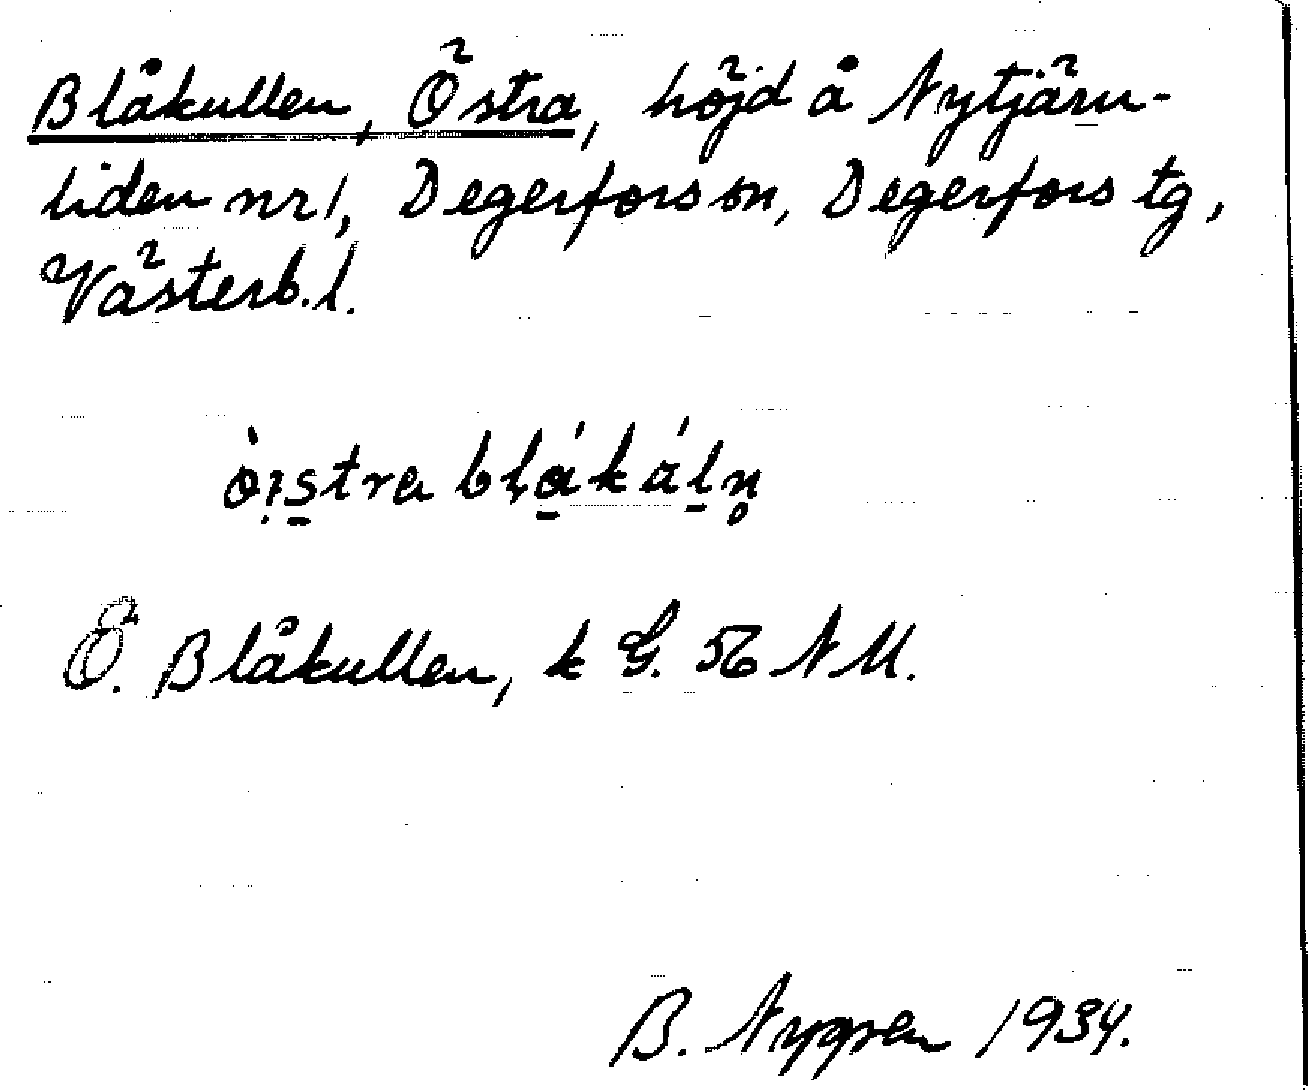 Blåkullen, Östra, höjd å Nytjärn-
liden nr 1, Degerfors sn, Degerfors tg,
Västerb. l.
östra blåkåln
Ö. Blåkullen, k G. 56 NM.
B. Nygren 1934.